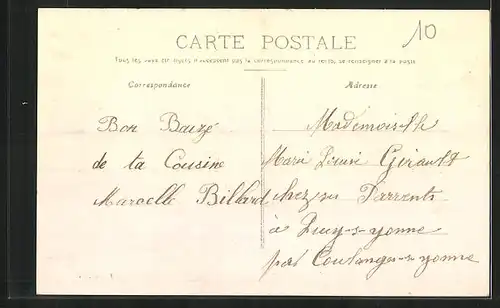 10
CARTE POSTALE
Tous les pays étrangers n'acceptent pas la correspondance au recto, se renseigner à la poste
Correspondance
Adresse
Bon Baizé
de ta Cousine
Marcelle Billard
Mademoiselle
Marie Louise Girault
chez ses Parrents
à Lucy-s-yonne
par Coulanges-s-yonne